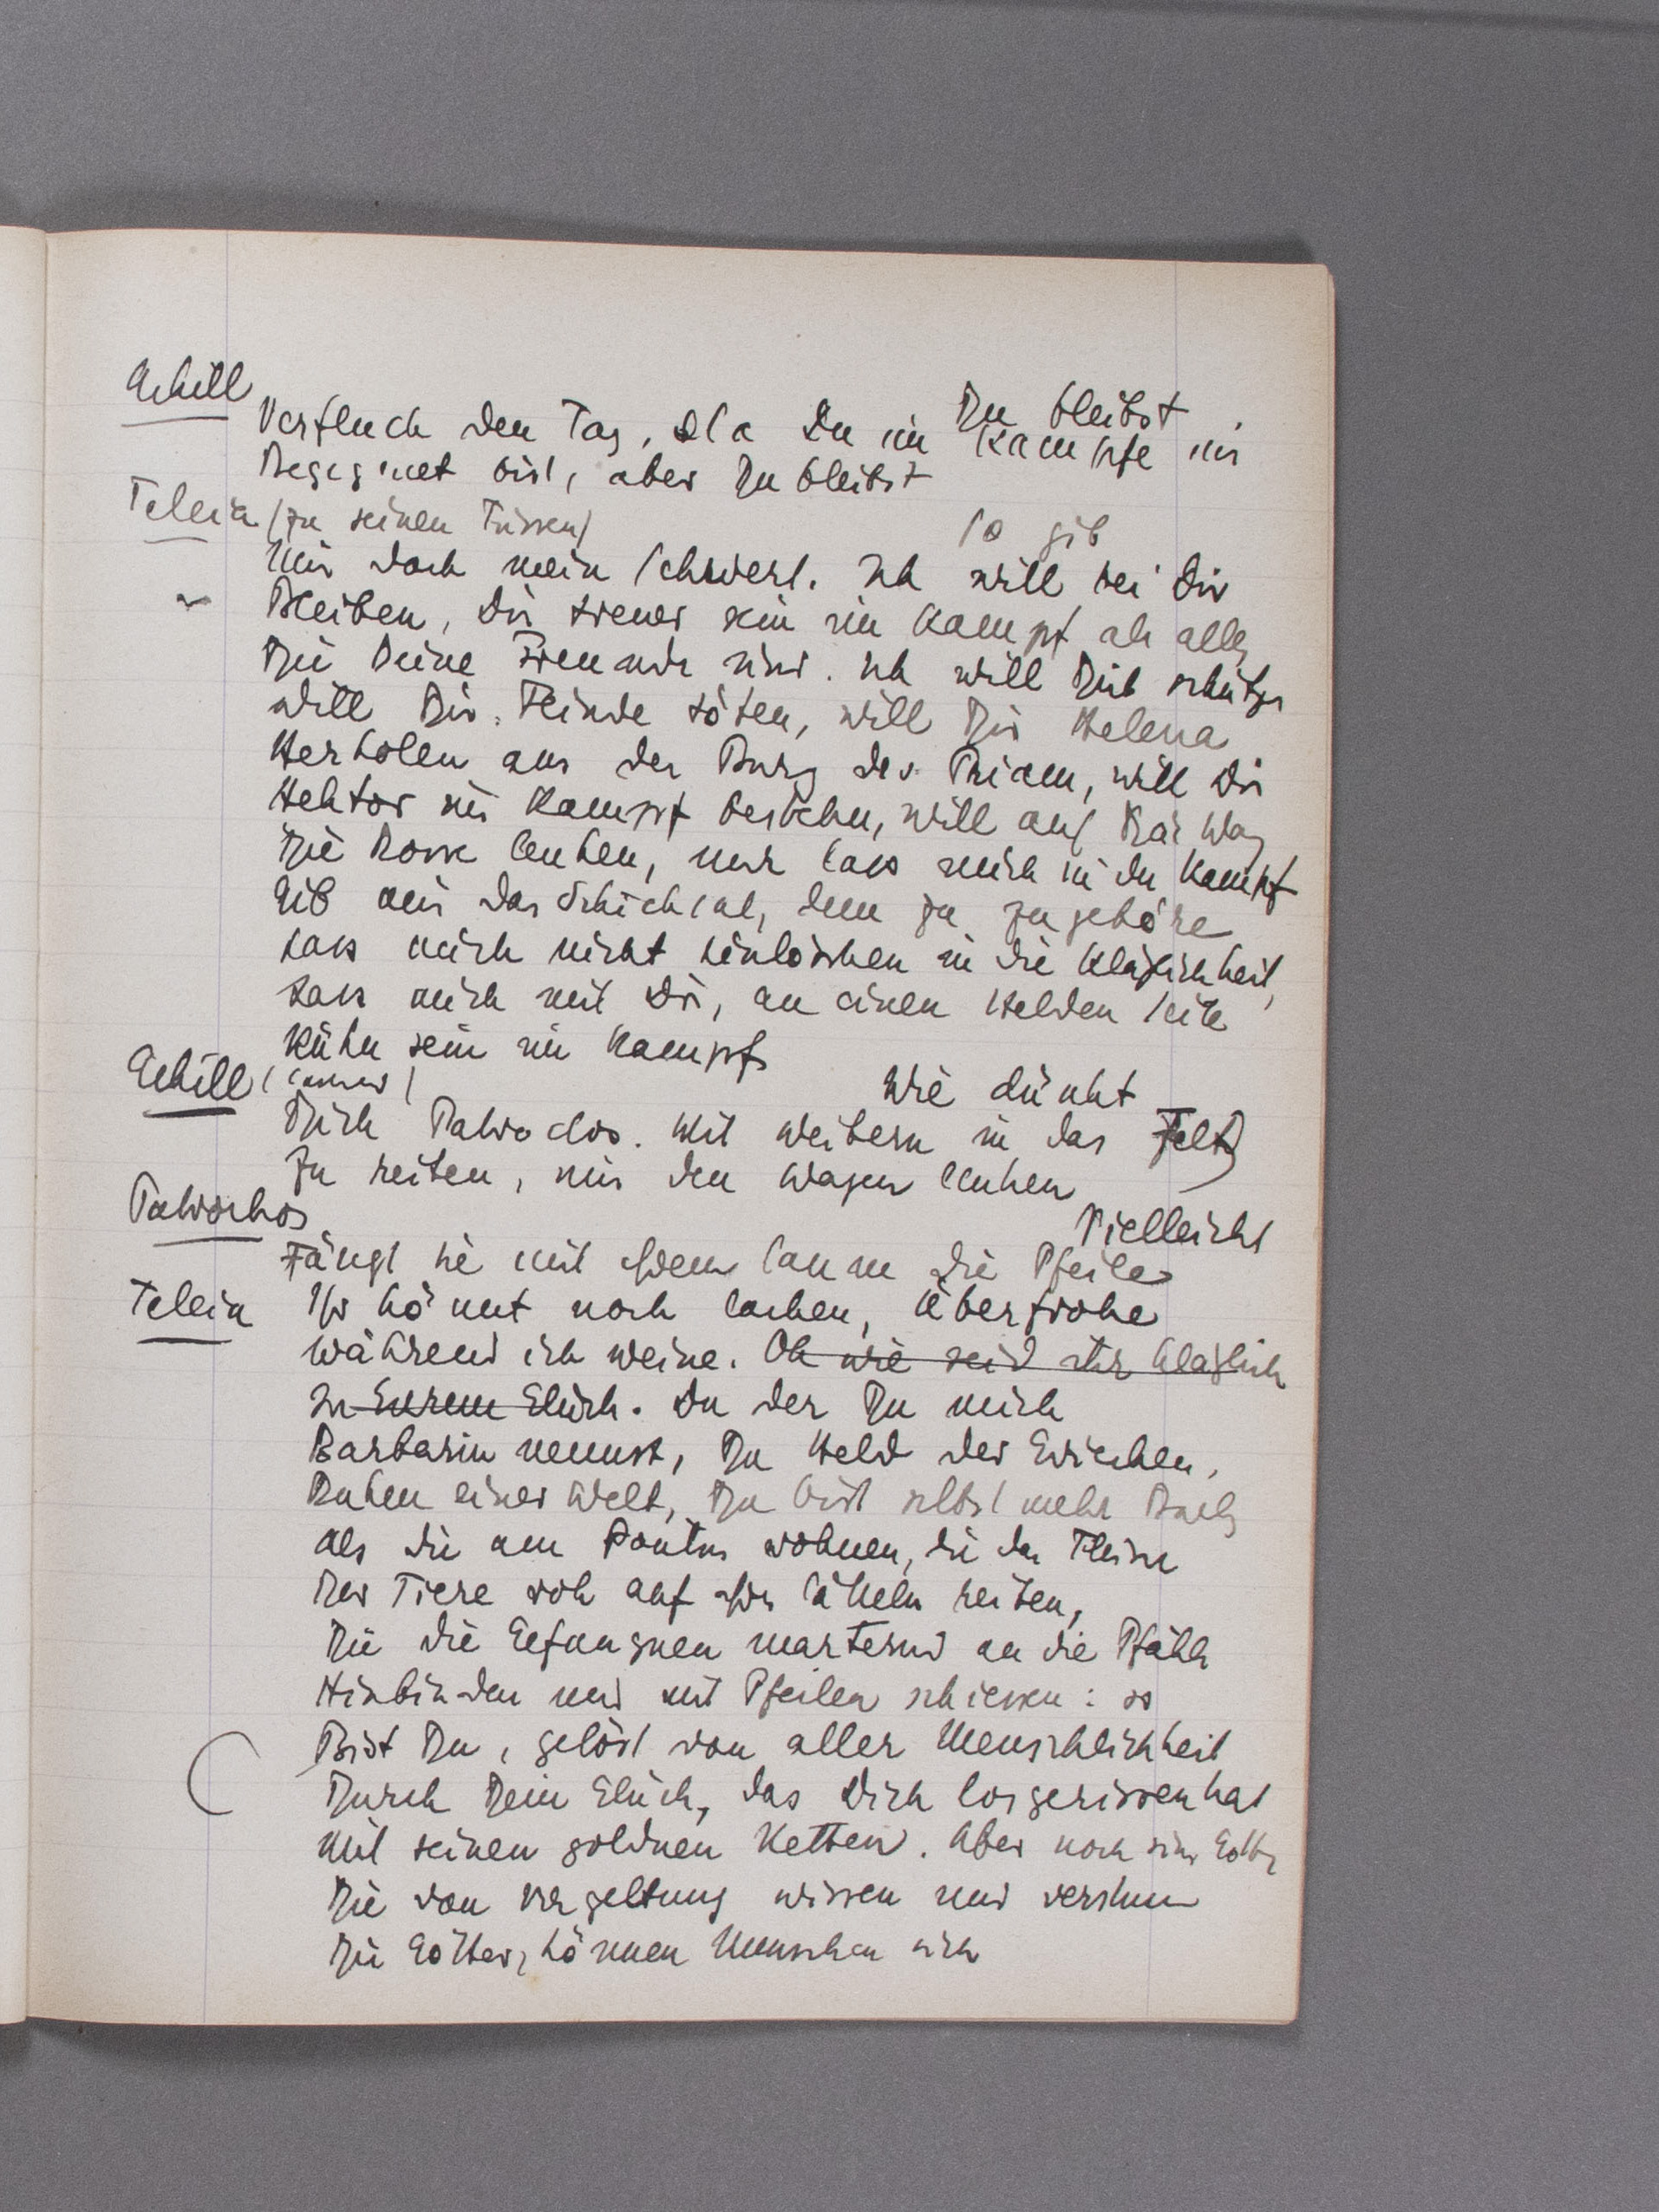 Achill
Du bleibst
Verfluch den Tag, da Du im Kampfe mir
Begegnet bist, aber Du bleibst
Teleia (zu seinen Füssen)
So gib
Mir doch mein Schwert. Ich will bei Dir
Bleiben, Dir treuer sein im Kampf als alle,
Die Deine Freunde sind. Ich will Dich schützen
Will Dir Feinde töten, will Dir Helena
Herholen aus der Burg des Priam, will Dir
Hektor im Kampf bestehn, will auf
Die Rosse lenken, nur lass mich in den Kampf
Gib mir das Schicksal, dem zu gehöre
Lass mich nicht hinlöschen in die Kläglichkeit,
Lass mich mit Dir, an einen Helden Seite
Kühn sein im Kampf
Achill
Wie dünkt
Dich Patroclos. Mit Weibern in das Feld
Zu reiten, mir den Wagen lenken
Patroclos
Vielleicht
Fängt sie mit dem die Pfeile
Teleia Ihr könnt noch lachen, Überfrohe
Während ich weine. Oh wie seid ihr kläglich
In Eurem Glück. Du der Du mich
Barbarin nennst, Du Held der Griechen,
einer Welt, Du bist selbst mehr
als die am Pontus wohnen, die das Fleisch
Der Tiere roh auf Sätteln reiten,
Die die Gefangnen marternd an die Pfähle
Hinbinden und mit Pfeilen schiessen: so
Bist Du, gelöst von aller Menschlichkeit
Durch Dein Glück, das Dich losgerissen hat
Mit seinen goldnen Ketten. Aber noch sind Götter
Die von Vergeltung wissen und
Die Götter, können Menschen sich